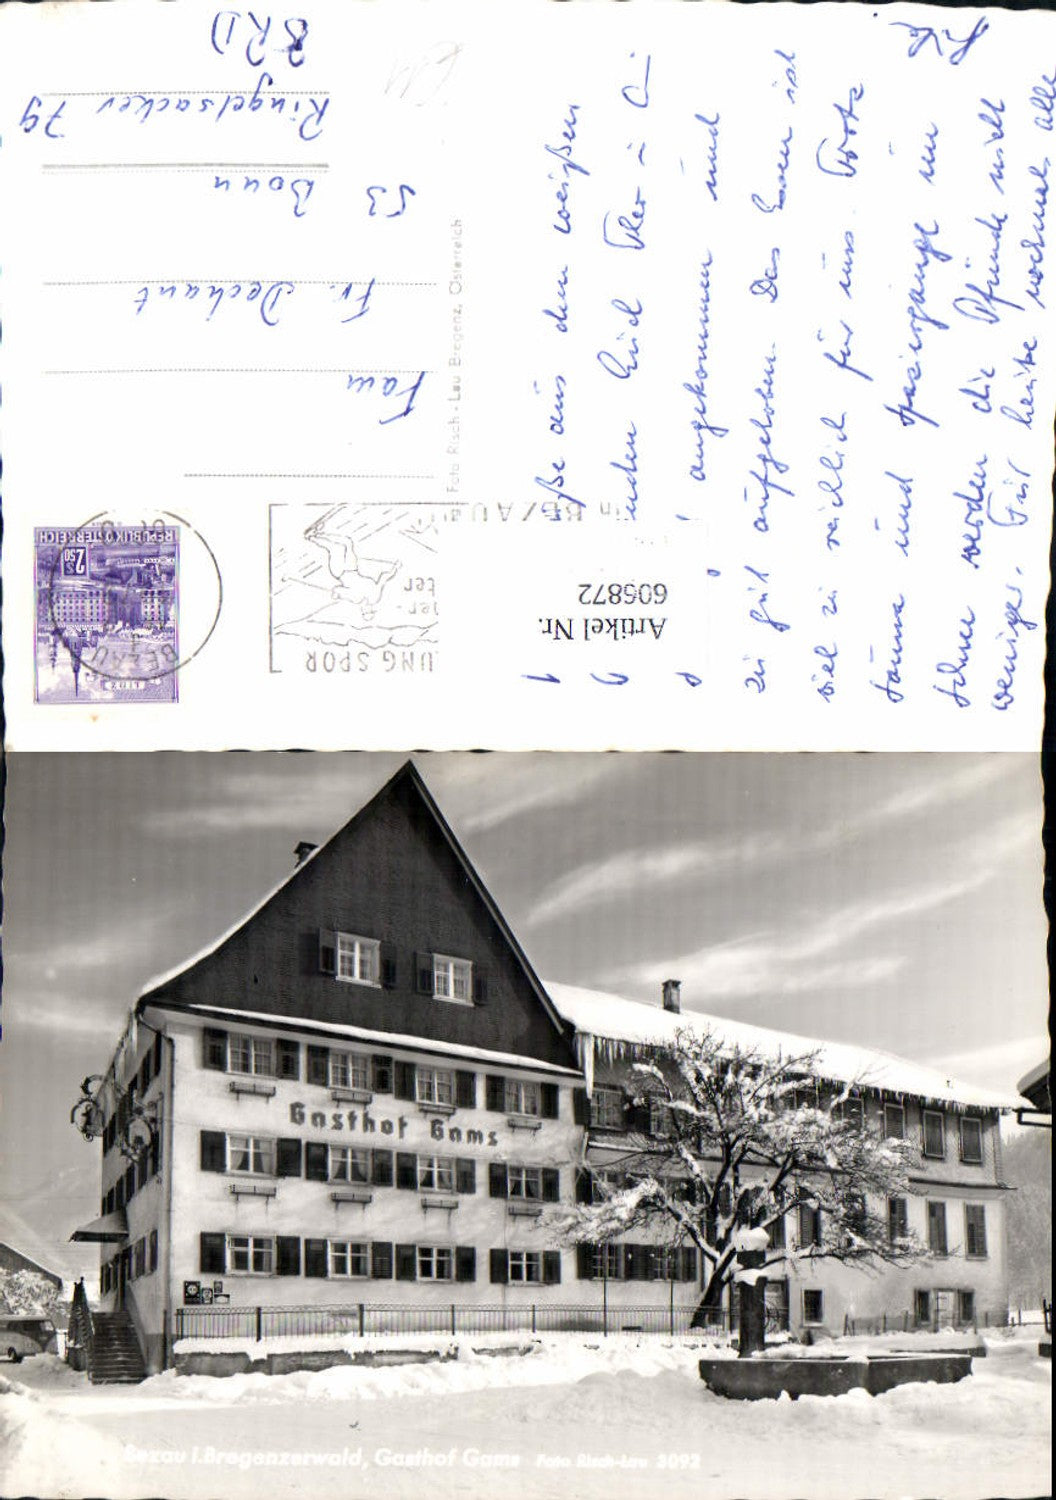 BRD
Ringelsacker 79
53 Bonn
Fr. Dechant
Fam
Foto Risch-Lau Bregenz, Österreich
REPUBLIK ÖSTERREICH
2.50
LINZ
BEZAU
in BEZAU
ter
UNG SPOR
Artikel Nr.
606872
ße aus den weißen
angekommen und
zu gut aufgehoben. Das Essen ist
viel zu reichlich für uns. Trotz
Sonne und Spaziergänge im
Schnee werden die Pfunde nicht
weniger. Für heute nochmals alle
Gasthof Gams
Bezau i. Bregenzerwald, Gasthof Gams Foto Risch-Lau 3092